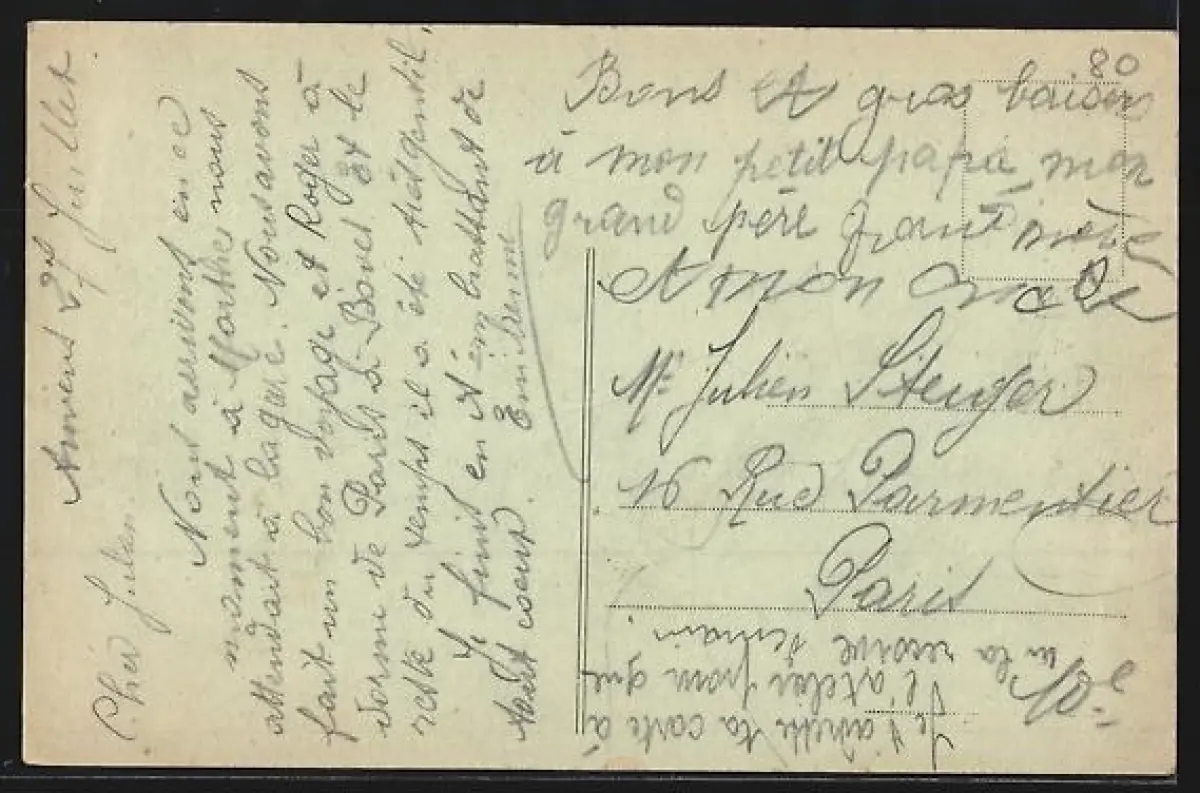 Amiens 27 Juillet
Cher Julien
Nous arrivons en ce
moment à Marthe nous
attendait à la gare. Nous avons
fait un bon voyage et Roger à
dormi de Paris à Boves Et le
reste du temps il a été très gentil.
Je finis en t'embrassant de
tout coeur.
80
Bons Et gros baisers
à mon petit papa mon
grand père grand mère
Et mon
Mr Julien Steuger
16 Rue Parmentier
Paris
Je t'adresse ta carte à
l'atelier pour que
tu la reçoive demain